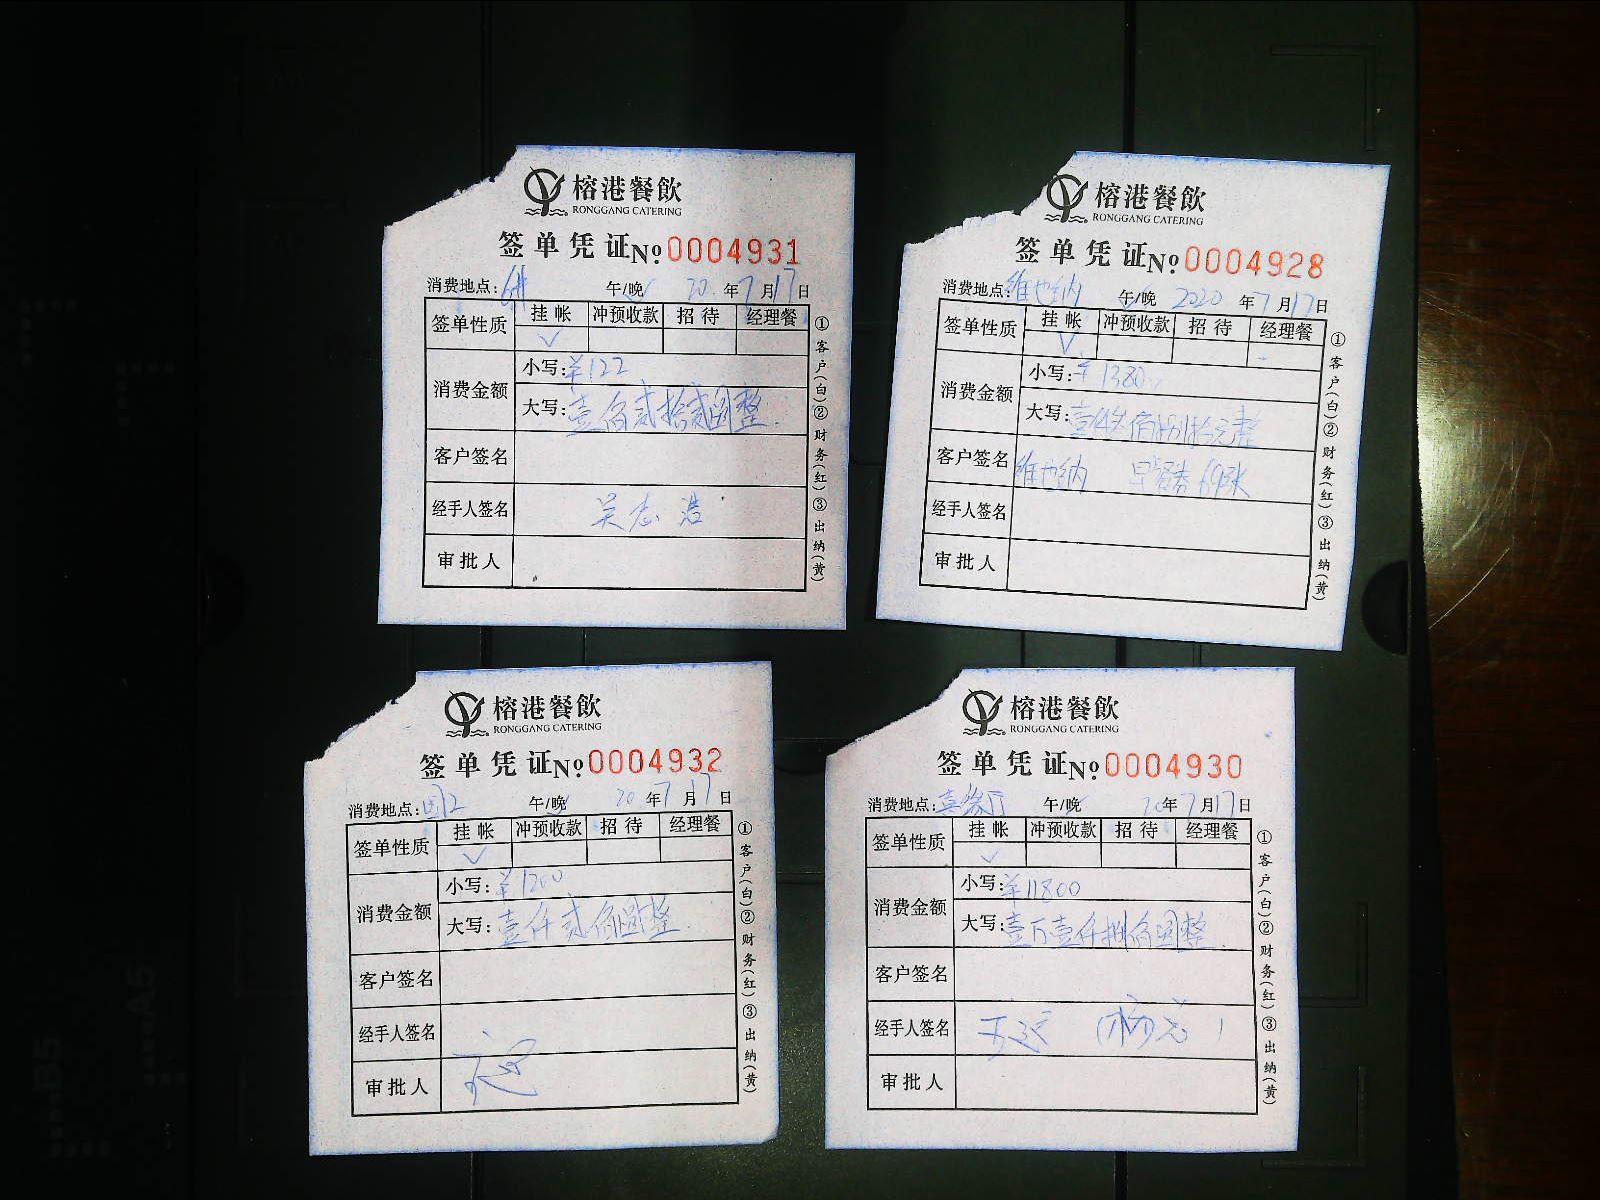 榕港餐飲
RONGGANG CATERING
签单凭证 No 0004931
消费地点: 午/晚 20 年 7 月 17 日
签单性质 挂帐 冲预收款 招待 经理餐
✓
消费金额 小写: ¥122
大写: 壹佰贰拾贰圆整
客户签名
经手人签名 吴志浩
审批人
①客户(白)②财务(红)③出纳(黄)
榕港餐飲
RONGGANG CATERING
签单凭证 No 0004928
消费地点: 维也纳 午/晚 2020 年 7 月 17 日
签单性质 挂帐 冲预收款 招待 经理餐
✓
消费金额 小写: ¥1380
大写: 壹仟叁佰捌拾元整
客户签名 维也纳 早餐券69张
经手人签名
审批人
①客户(白)②财务(红)③出纳(黄)
榕港餐飲
RONGGANG CATERING
签单凭证 No 0004932
消费地点: 午/晚 20 年 7 月 17 日
签单性质 挂帐 冲预收款 招待 经理餐
✓
消费金额 小写: ¥1200
大写: 壹仟贰佰圆整
客户签名
经手人签名
审批人
①客户(白)②财务(红)③出纳(黄)
榕港餐飲
RONGGANG CATERING
签单凭证 No 0004930
消费地点: 午/晚 20 年 7 月 17 日
签单性质 挂帐 冲预收款 招待 经理餐
✓
消费金额 小写: ¥11800
大写: 壹万壹仟捌佰圆整
客户签名
经手人签名
审批人
①客户(白)②财务(红)③出纳(黄)
A5
B5